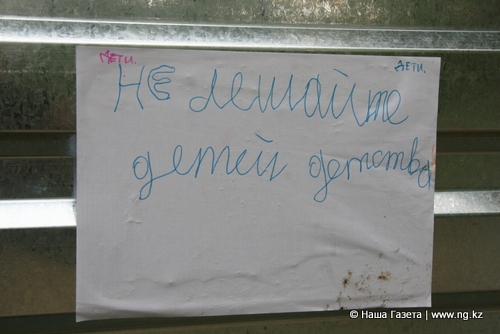 Дети. Дети.
Не лешайте
детей детства
© Наша Газета | www.ng.kz